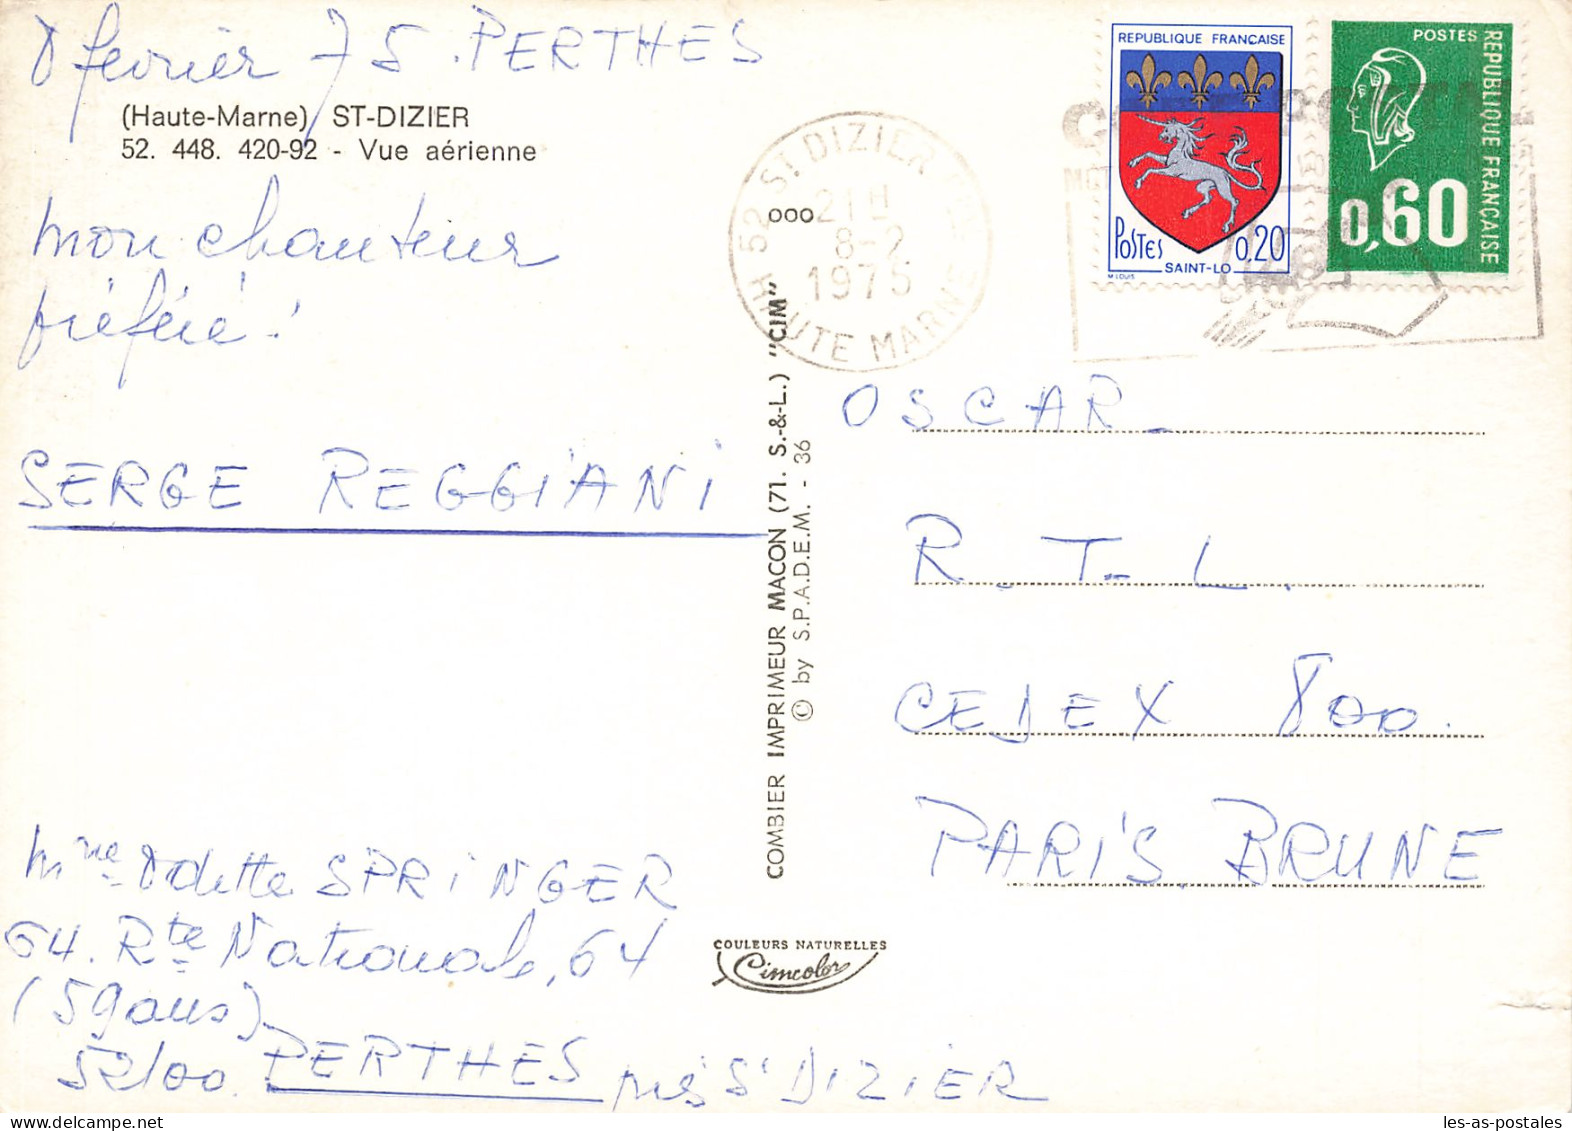 8 février 75. PERTHES
(Haute-Marne) ST-DIZIER
52. 448. 420-92 - Vue aérienne
mon chanteur
préféré!
SERGE REGGIANI
Mme Odette SPRINGER
64. Rte Nationale, 64
(59 ans)
52100. PERTHES près St DIZIER
COMBIER IMPRIMEUR MACON (71. S.-&-L.) "CIM"
© by S.P.A.D.E.M. - 36
COULEURS NATURELLES
Cimcolor
52 ST DIZIER
000
21H
8-2
1975
HAUTE MARNE
REPUBLIQUE FRANÇAISE
POSTES
0,20
SAINT-LO
M. LOUIS
POSTES
REPUBLIQUE FRANÇAISE
0,60
OSCAR_
R.T.L.
CEDEX 800.
PARIS BRUNE
les-as-postales